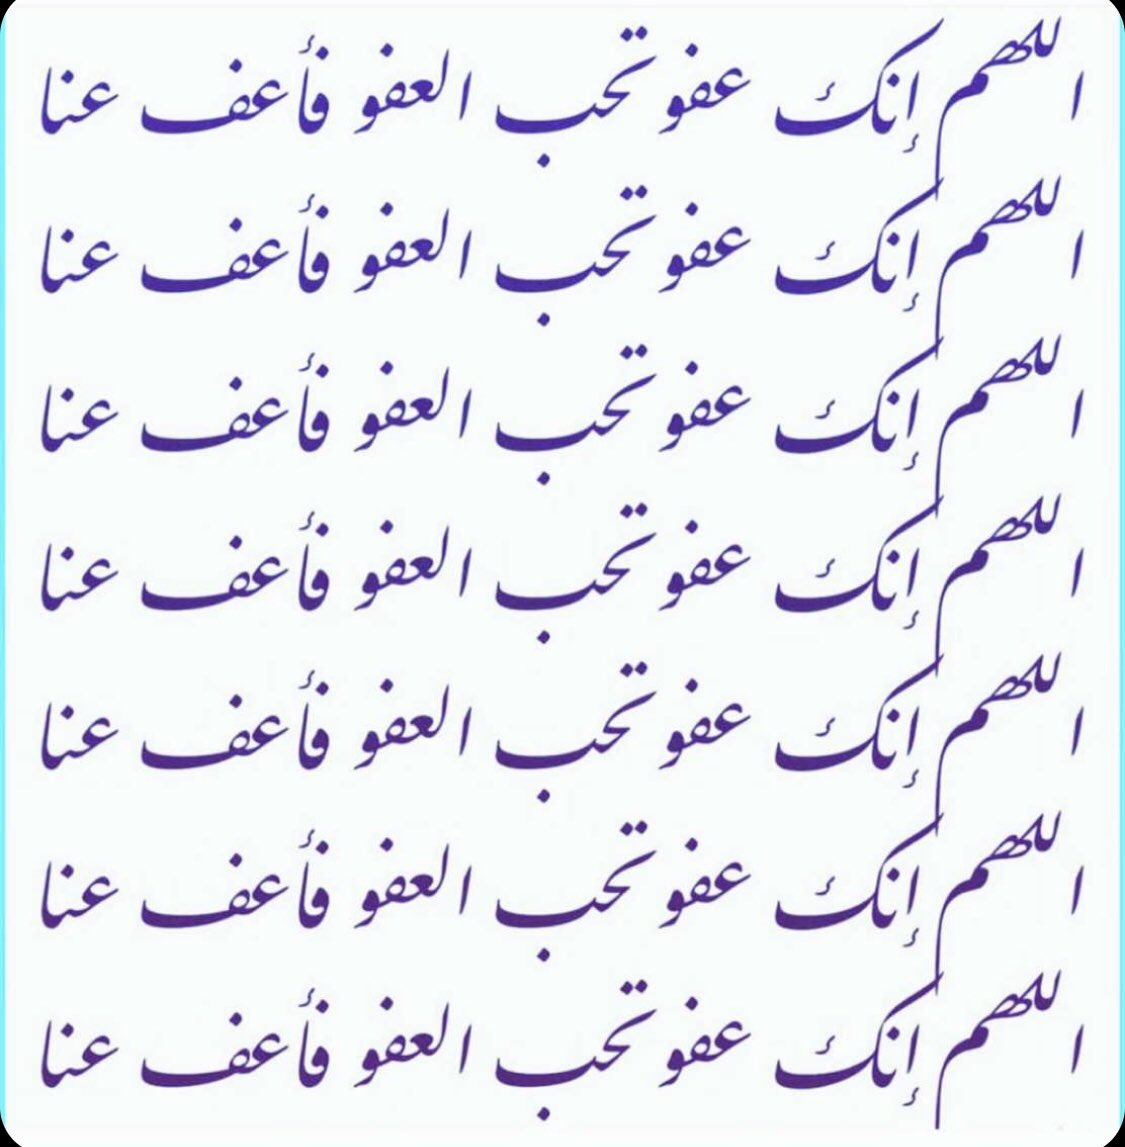 اللهم إنك عفو تحب العفو فأعف عنا
اللهم إنك عفو تحب العفو فأعف عنا
اللهم إنك عفو تحب العفو فأعف عنا
اللهم إنك عفو تحب العفو فأعف عنا
اللهم إنك عفو تحب العفو فأعف عنا
اللهم إنك عفو تحب العفو فأعف عنا
اللهم إنك عفو تحب العفو فأعف عنا